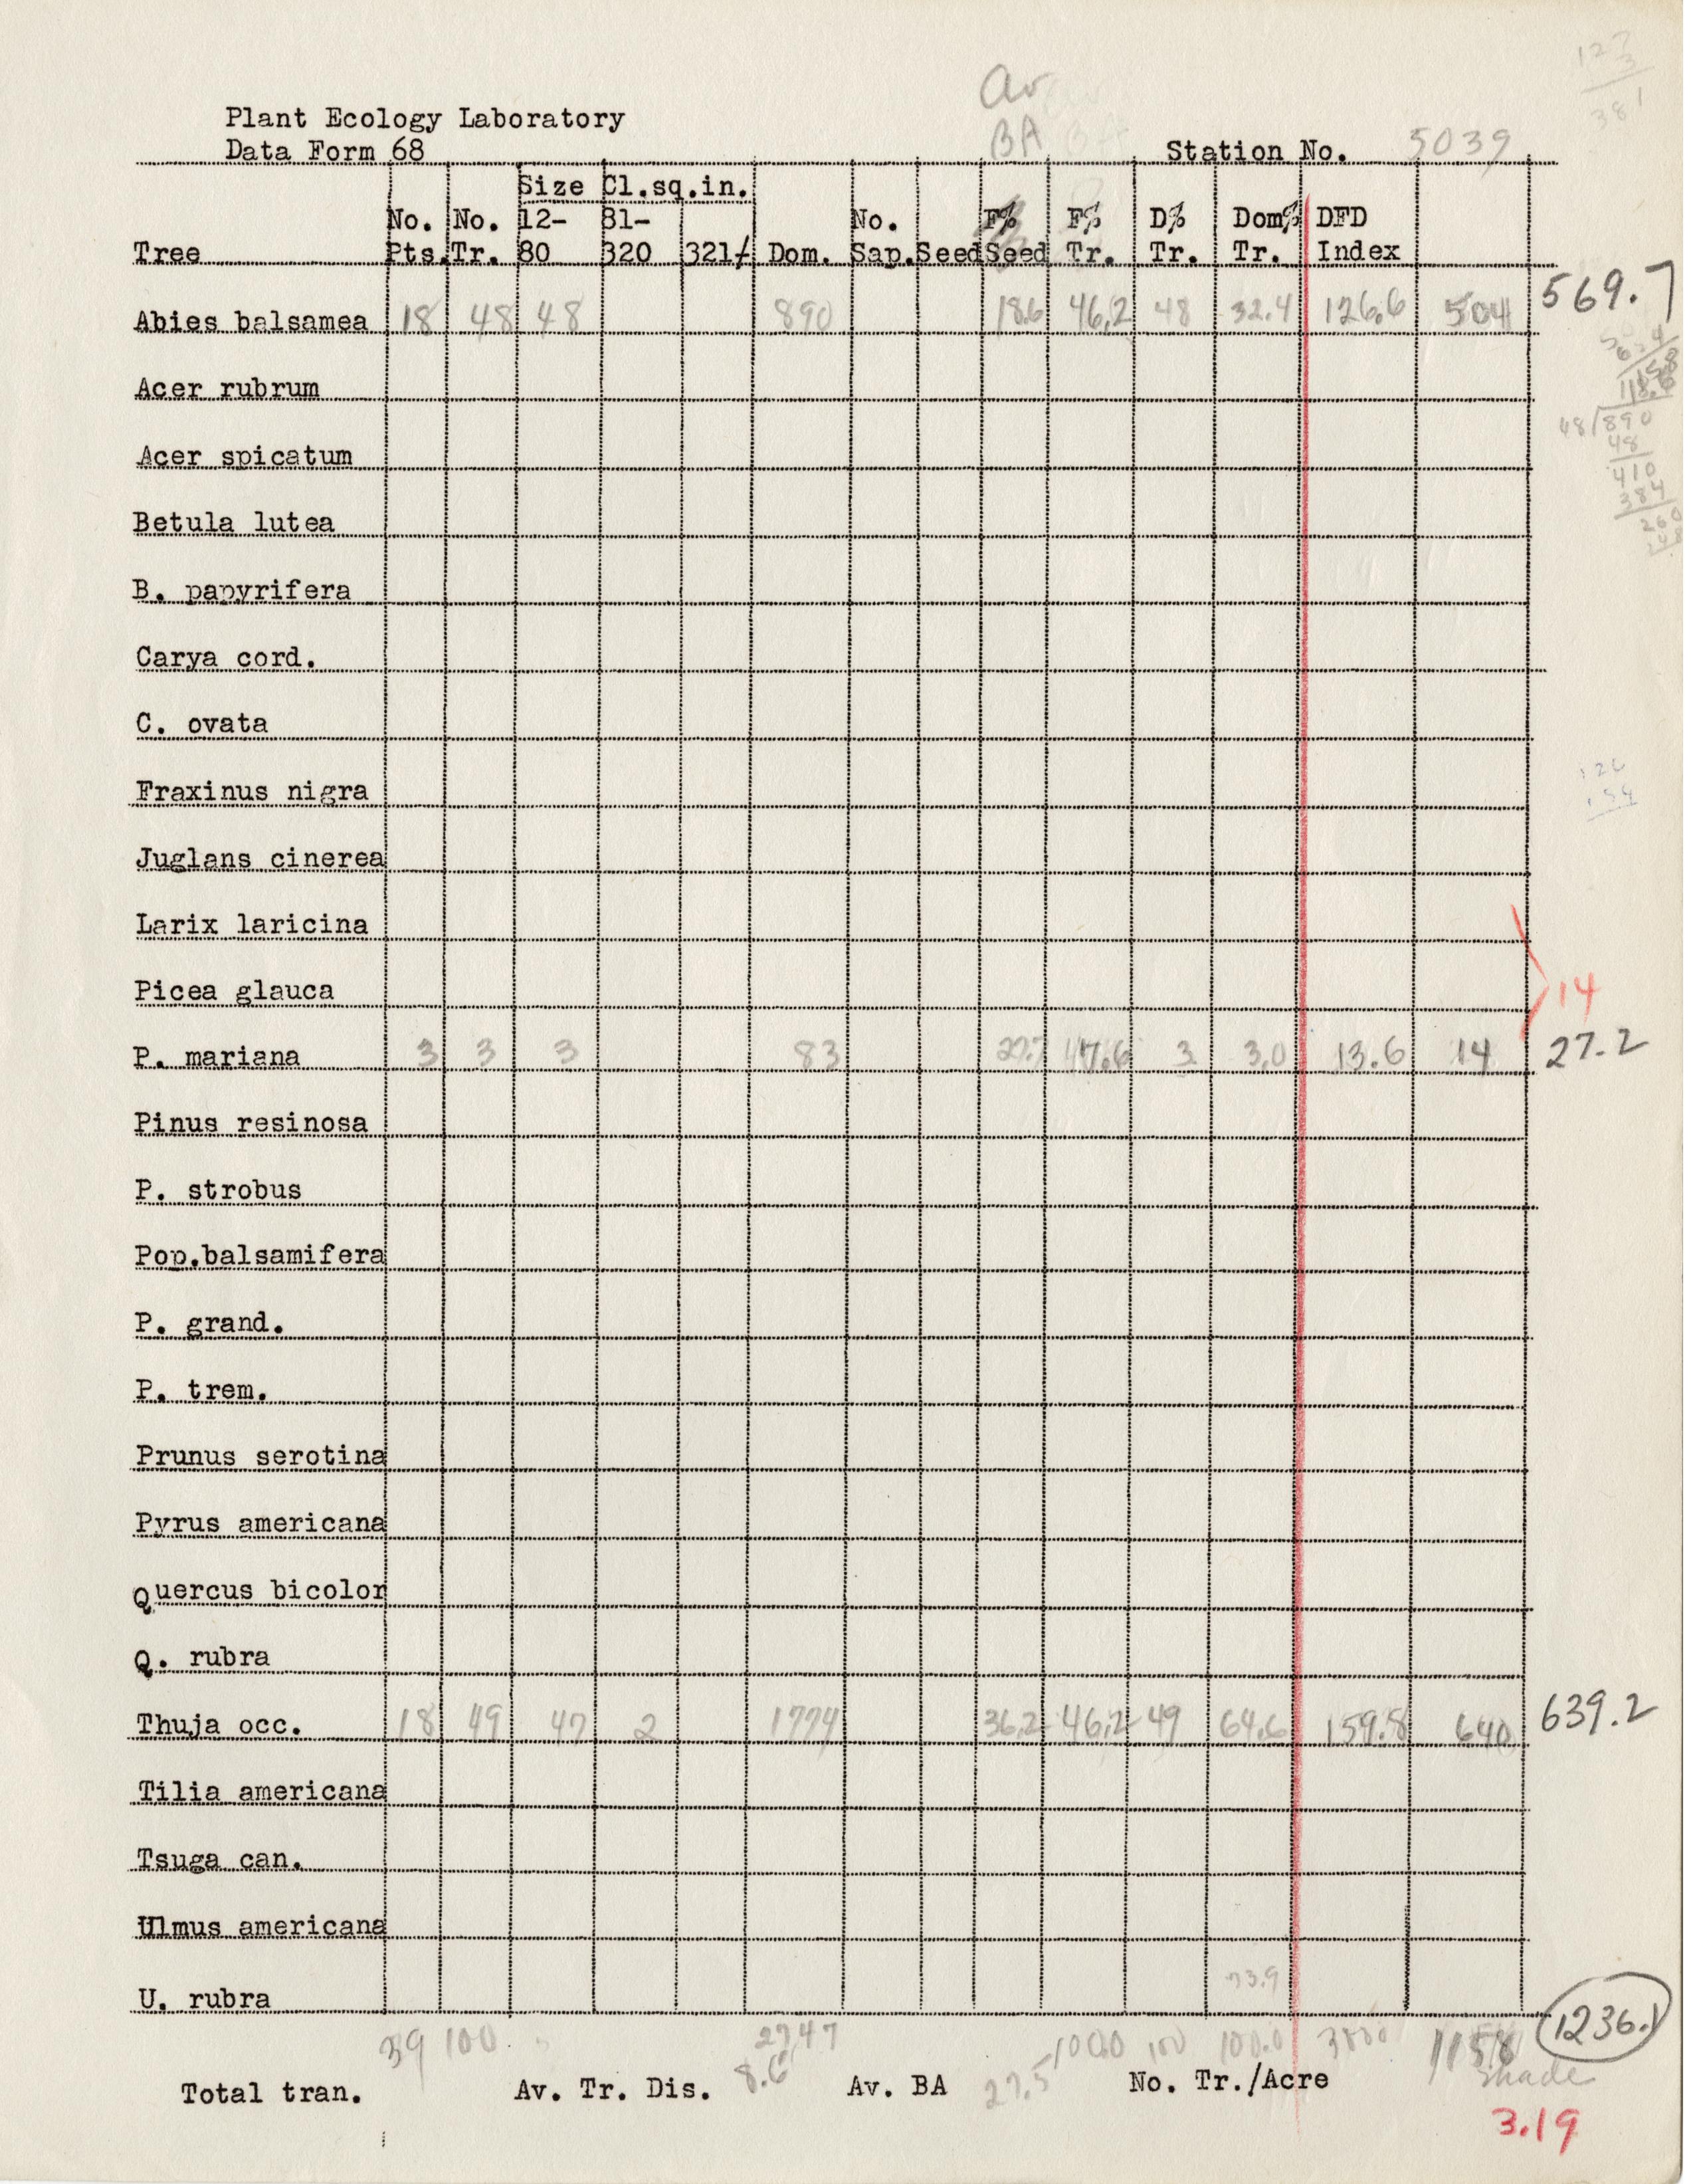 127
3
381
Av
BA
Plant Ecology Laboratory
Data Form 68
Station No. 5039
Size Cl.sq.in.
No. No. 12- 81- No. F% F% D% Dom% DFD
Tree Pts. Tr. 80 320 321/ Dom. Sap. Seed Seed Tr. Tr. Tr. Index
569.7
Abies balsamea 18 48 48 890 18.6 46.2 48 32.4 126.6 504
Acer rubrum
48/890
48
410
384
260
Acer spicatum
Betula lutea
B. papyrifera
Carya cord.
C. ovata
Fraxinus nigra
Juglans cinerea
Larix laricina
Picea glauca
14
P. mariana 3 3 3 83 27.7 7.6 3 3.0 13.6 14 27.2
Pinus resinosa
P. strobus
Pop.balsamifera
P. grand.
P. trem.
Prunus serotina
Pyrus americana
Quercus bicolor
Q. rubra
Thuja occ. 18 49 47 2 1774 36.2 46.2 49 64.6 159.8 640 639.2
Tilia americana
Tsuga can.
Ulmus americana
U. rubra
1236.1
39 100 2747 100.0 100 100.0 1158
Total tran. Av. Tr. Dis. 8.6 Av. BA 27.5 No. Tr./Acre
shade
3.19